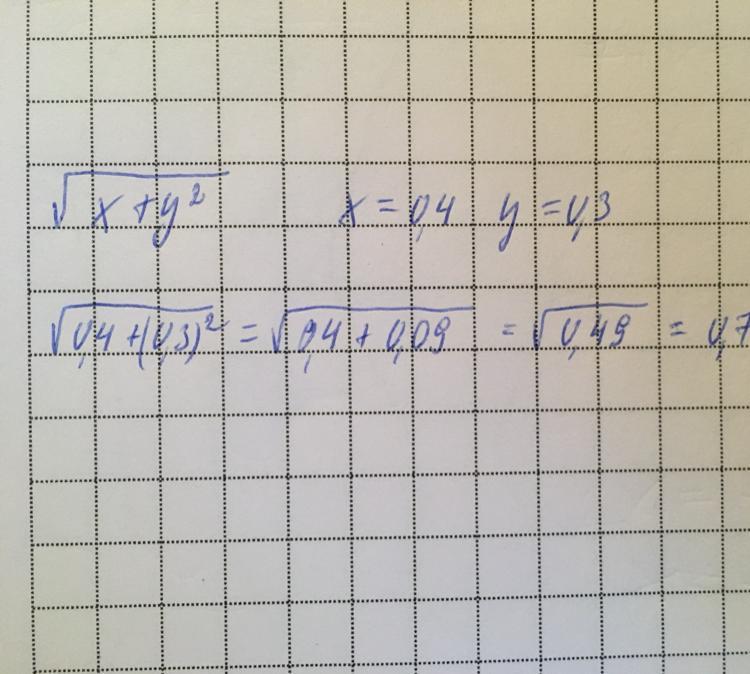 √x+y² x=0,4 y=0,3
√0,4+(0,3)² = √0,4+0,09 = √0,49 = 0,7